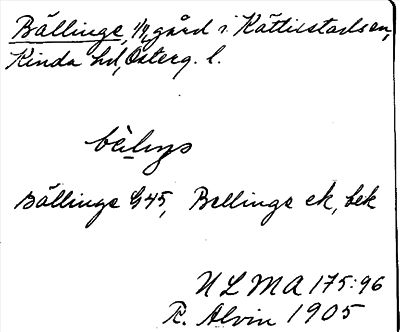 Bällinge, 1/1 gård i Kättilstads sn,
Kinda hd, Österg. l.
Bällinge G45, Bellinge ek, bek
ULMA 175:96
R. Alvin 1905